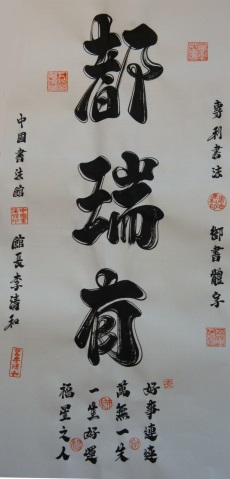 都瑞有
專利書法
御書體字
好事連連
萬無一失
一生好運
福星之人
中国書法館
館長李清和